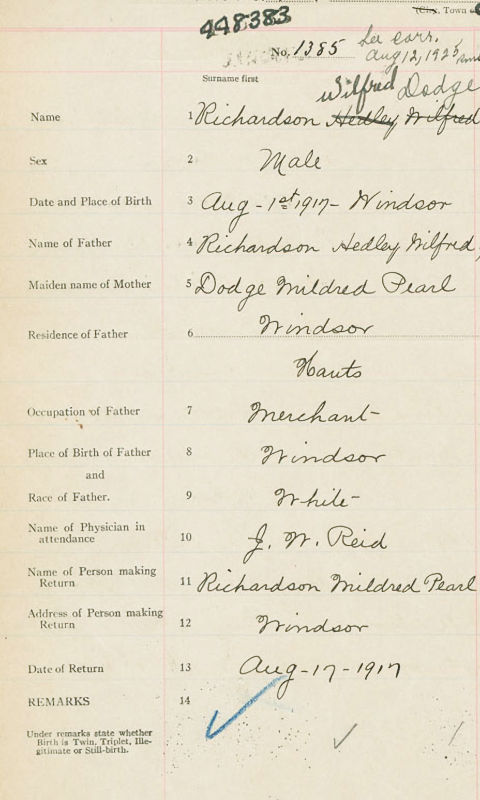 (City, Town o
448383
No. 1385
See corr.
Aug 12, 1925
Surname first
Wilfred Dodge
Name 1 Richardson Hedley Wilfred
Sex 2 Male
Date and Place of Birth 3 Aug - 1st 1917 - Windsor
Name of Father 4 Richardson Hedley Wilfred
Maiden name of Mother 5 Dodge Mildred Pearl
Residence of Father 6 Windsor
Hants
Occupation of Father 7 Merchant
Place of Birth of Father 8 Windsor
and
Race of Father. 9 White
Name of Physician in
attendance 10 J. W. Reid
Name of Person making
Return 11 Richardson Mildred Pearl
Address of Person making
Return 12 Windsor
Date of Return 13 Aug - 17 - 1917
REMARKS 14
Under remarks state whether
Birth is Twin, Triplet, Ille-
gitimate or Still-birth.